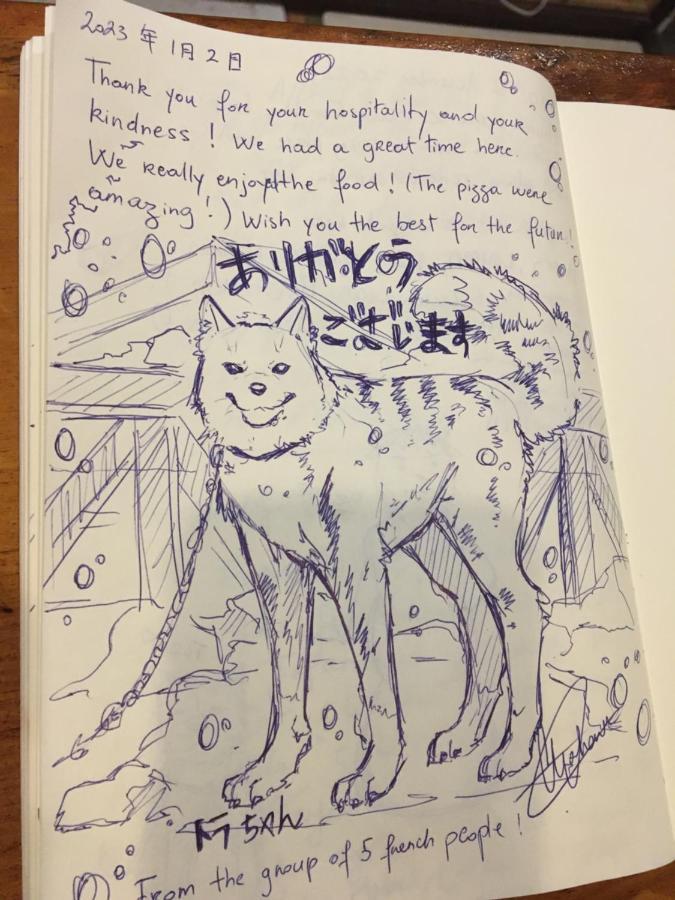 2023年1月2日
Thank you for your hospitality and your
kindness! We had a great time here.
We really enjoyed the food! (The pizza were
amazing!) Wish you the best for the futur!
ありがとう
ございます
トラちゃん
From the group of 5 french people!